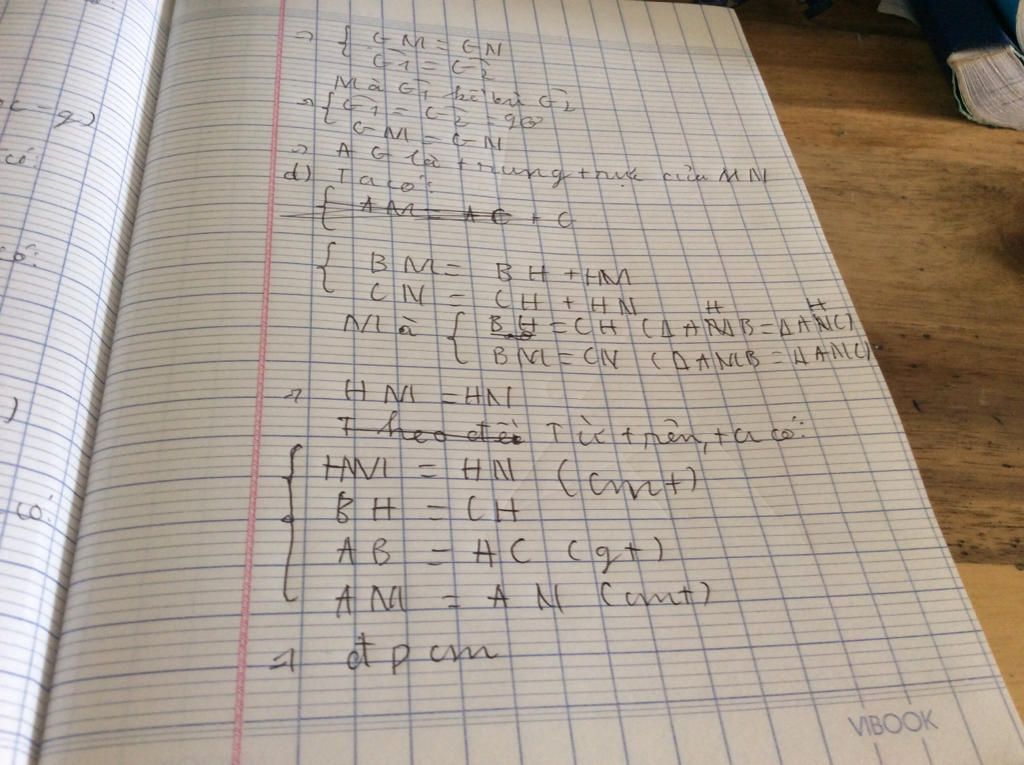 ⇒ { GM = GN
G1 = G2
Mà G1 kề bù G2
⇒ { G1 = G2 = 90
GM = GN
⇒ AG là trung trực của MN
d) Ta có:
{ AM = AC + C
{ BM = BH + HM
CN = CH + HN
Mà { BH = CH (ΔAHB = ΔAHC)
BM = CN (ΔAMB = ΔANC)
⇒ HM = HN
Theo đề Từ trên, ta có:
{ HM = HN (cmt)
BH = CH
AB = AC (gt)
AM = AN (cmt)
⇒ đpcm
VIBOOK
có:
)
có: